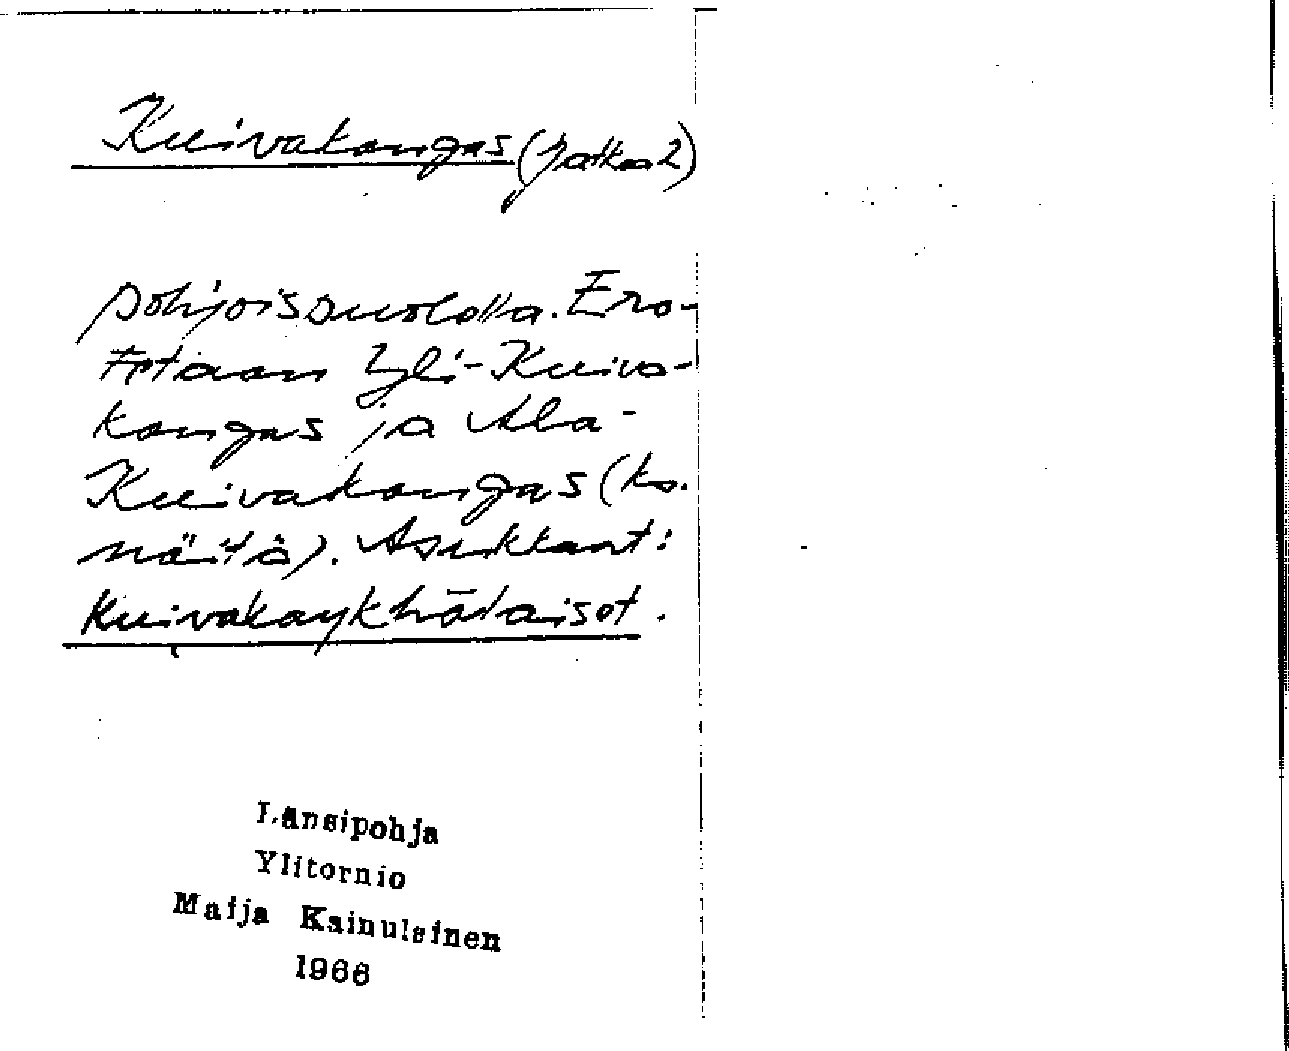 Kuivakangas (jatkoa 2)
pohjoispuolella. Ero-
tetaan Yli-Kuiva-
kangas ja Ala-
Kuivakangas (ks.
näitä). Asukkaat:
Länsipohja
Ylitornio
Maija Kainulainen
1966